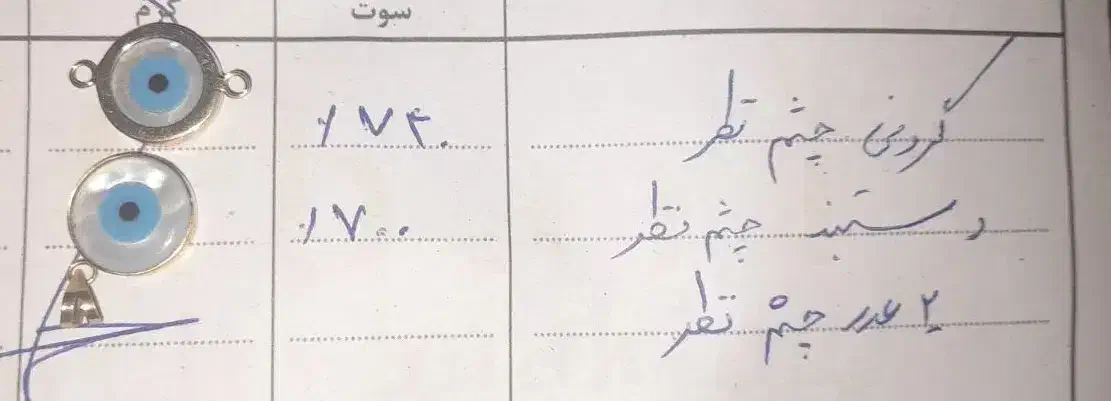 سوت گرم
گردنی چشم نظر /۷۴۰
دستبند چشم نظر /۷۰۰
۲ عدد چشم نظر